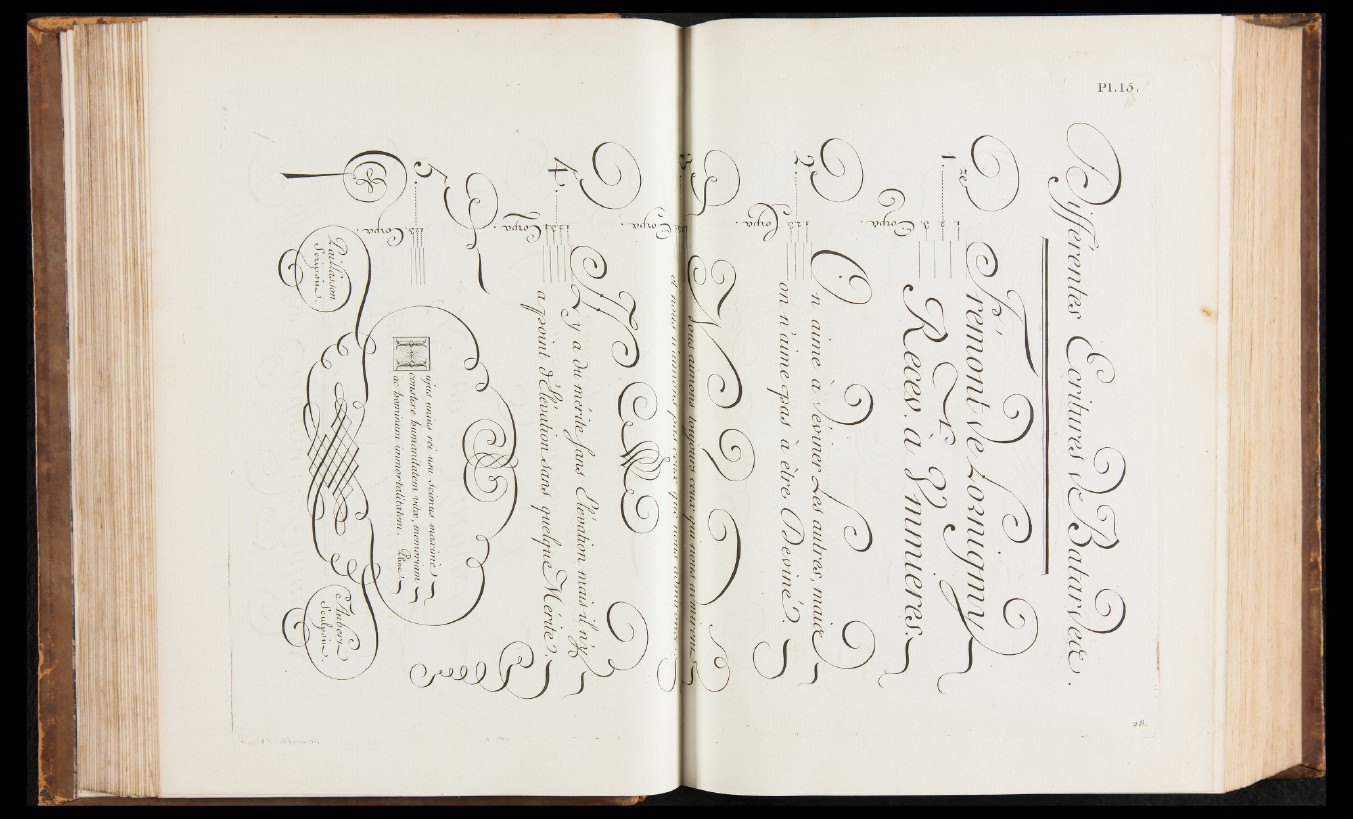 Pl. 15.
Différentes Ecritures de Batardes.
1.re
1. 2. 3. Corps.
Frémont de
Reces. à Mmmeres.
2.
1 2 3. Corps.
On aime à deviner les autres, mais
on n'aime pas à être Deviné.
3.
Corps.
Nous aimons toujours ceux qui nous admirent
et nous n'aimons pas ceux que nous admirons
4.
1 2 3 4 Corps.
Il y a du mérite sans Elévation mais il n'y
a point d'Elévation sans quelque Mérite.
5.
1 2 3. Corps.
Hujus unius rei usu scimus maxime
constare humanitatem vitæ, memoriam
ac hominum immortalitatem. Pline
Paillasson
Scripsit.
Aubin
Sculpsit.
28.